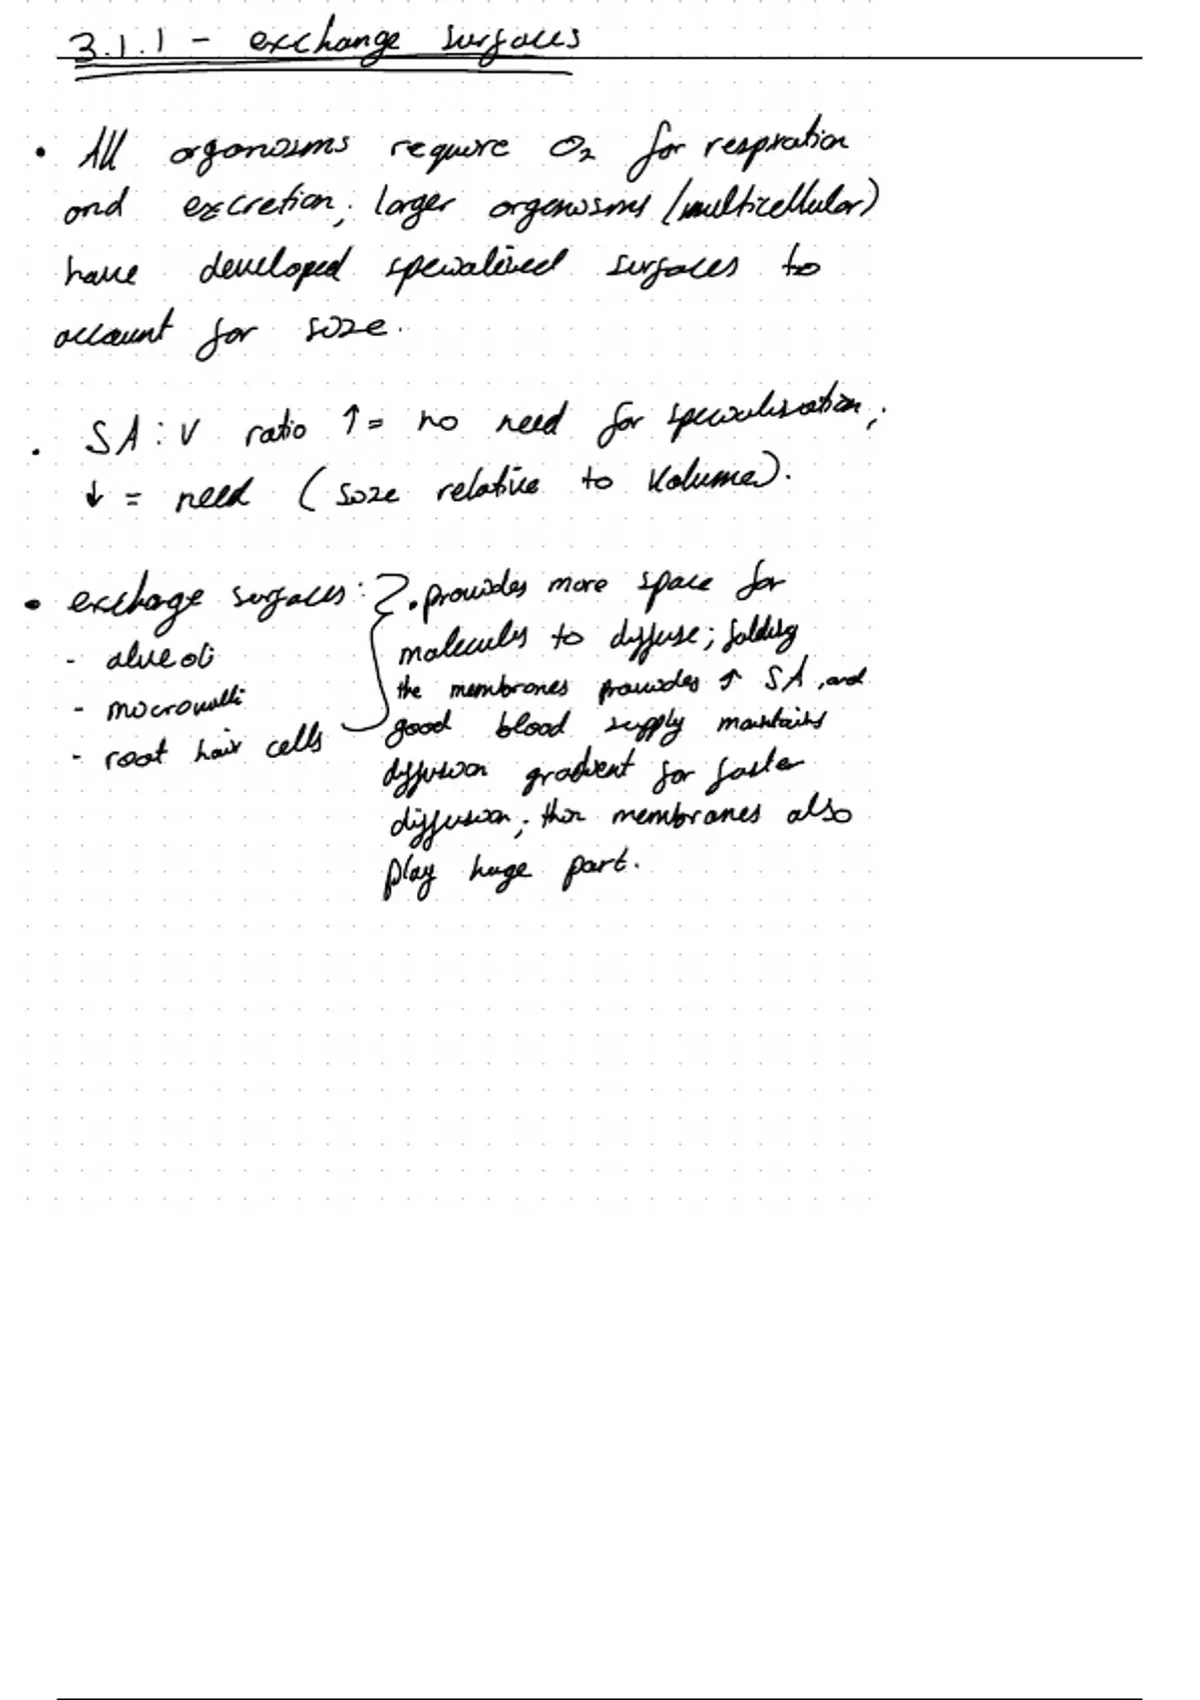 3.1.1 - exchange surfaces
• All organisms require O₂ for respiration
and excretion; larger organisms (multicellular)
have developed specialised surfaces to
account for size.
• SA:V ratio ↑ = no need for specialisation;
↓ = need (size relative to volume).
• exchange surfaces:
- alveoli
- microvilli
- root hair cells
• provides more space for
molecules to diffuse; folding
the membranes provides ↑ SA, and
good blood supply maintains
diffusion gradient for faster
diffusion; thin membranes also
play huge part.